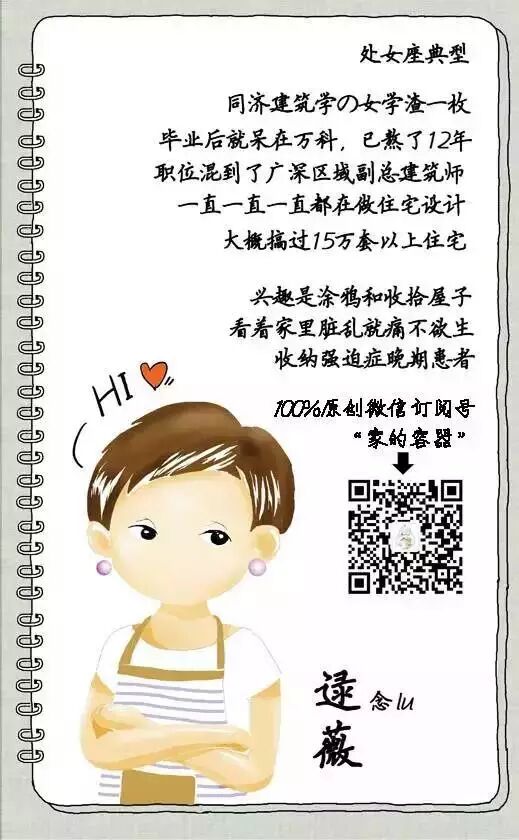 处女座典型
同济建筑学の女学渣一枚
毕业后就呆在万科，已熬了12年
职位混到了广深区域副总建筑师
一直一直一直都在做住宅设计
大概搞过15万套以上住宅
兴趣是涂鸦和收拾屋子
看着家里脏乱就痛不欲生
收纳强迫症晚期患者
HI
100%原创微信订阅号
“家的容器”
逯 念lu
薇